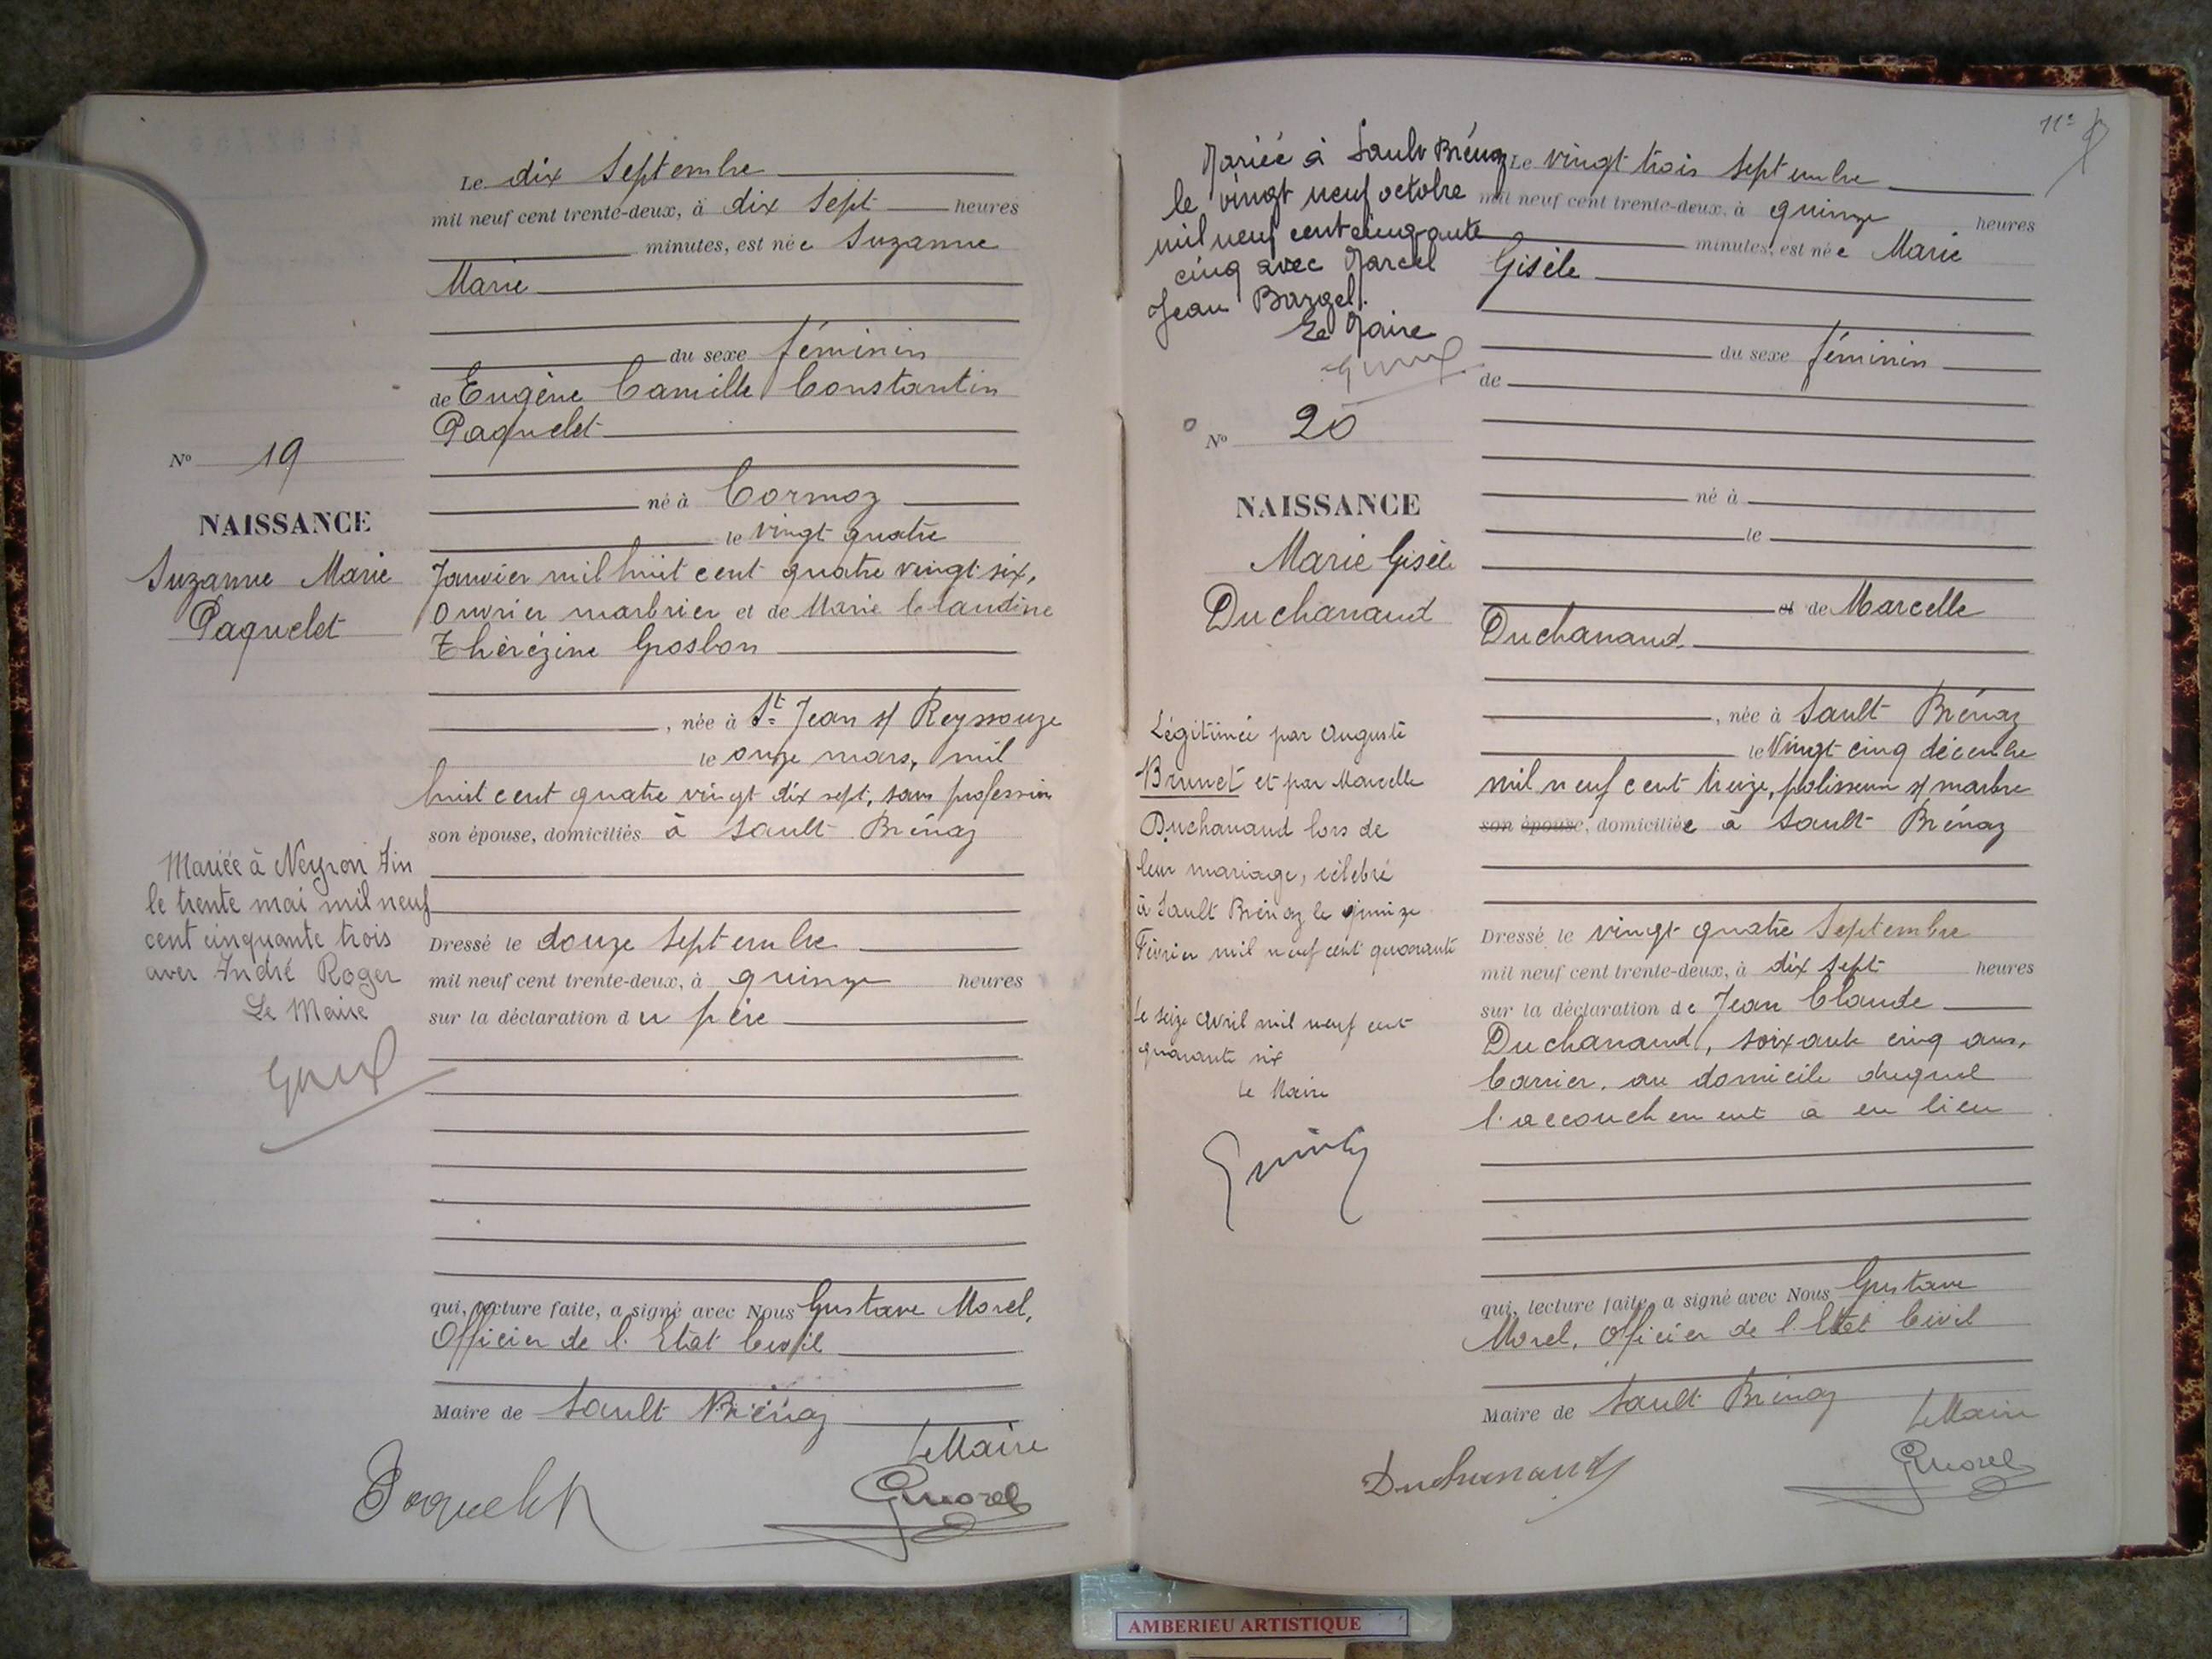 Le dix Septembre
mil neuf cent trente-deux, à dix sept heures
minutes, est née Suzanne
Marie
du sexe féminin
de Eugène Camille Constantin
Paquelet
né à Cormoz
le vingt quatre
Janvier mil huit cent quatre vingt six,
Ouvrier marbrier et de Marie Claudine
Thérézine Grosbon
, née à St Jean s/ Reyssouze
le onze mars, mil
huit cent quatre vingt dix sept, sans profession
son épouse, domiciliés à Sault Brénaz
Dressé le douze Septembre
mil neuf cent trente-deux, à quinze heures
sur la déclaration du père
qui, lecture faite, a signé avec Nous Gustave Morel,
Officier de l'Etat Civil
Maire de Sault Brénaz
Le Maire
Paquelet
GMorel
No 19
NAISSANCE
Suzanne Marie
Paquelet
Mariée à Neyron Ain
le trente mai mil neuf
cent cinquante trois
avec André Roger
Le Maire
Mariée à Sault Brénaz
le vingt neuf octobre
mil neuf cent cinquante
cinq avec Marcel
Jean Bargel.
Le Maire
No 20
NAISSANCE
Marie Gisèle
Duchanaud
Légitimée par Auguste
Brunet et par Marcelle
Duchanaud lors de
leur mariage, célébré
à Sault Brénaz le quinze
Février mil neuf cent quarante
Le seize Avril mil neuf cent
quarante six
Le Maire
Le vingt trois Septembre
mil neuf cent trente-deux, à quinze heures
minutes, est née Marie
Gisèle
du sexe féminin
de
né à
le
et de Marcelle
Duchanaud
, née à Sault Brénaz
le Vingt cinq décembre
mil neuf cent treize, polisseuse s/ marbre
son épouse, domiciliée à Sault Brénaz
Dressé le vingt quatre Septembre
mil neuf cent trente-deux, à dix sept heures
sur la déclaration de Jean Claude
Duchanaud, soixante cinq ans,
Carrier, au domicile duquel
l'accouchement a eu lieu
qui, lecture faite, a signé avec Nous Gustave
Morel, Officier de l'Etat Civil
Maire de Sault Brénaz
Le Maire
Duchanaud
GMorel
AMBERIEU ARTISTIQUE